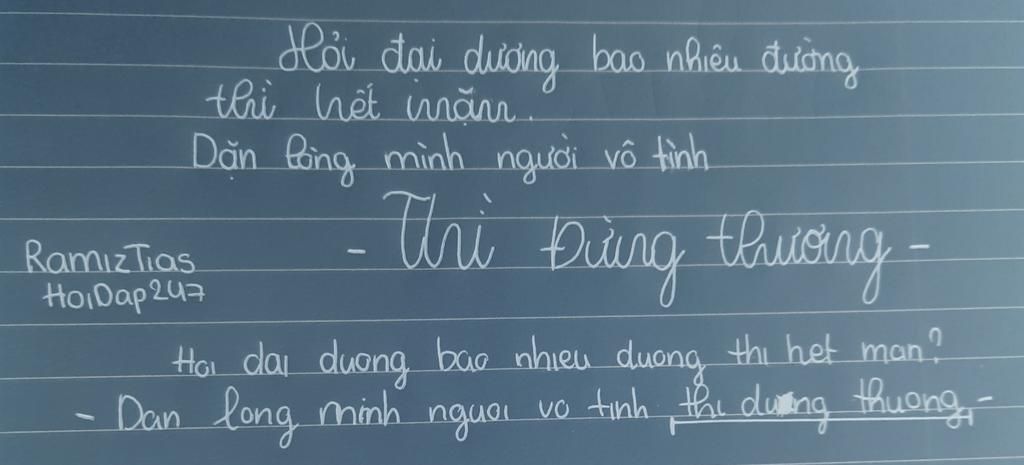 Hỏi đại dương bao nhiêu đường
thì hết mặn.
Dặn lòng mình người vô tình
- Thì Đừng thương -
RamizTias
HoiDap247
Hoi dai duong bao nhieu duong thi het man?
- Dan long minh nguoi vo tinh thi dung thuong -